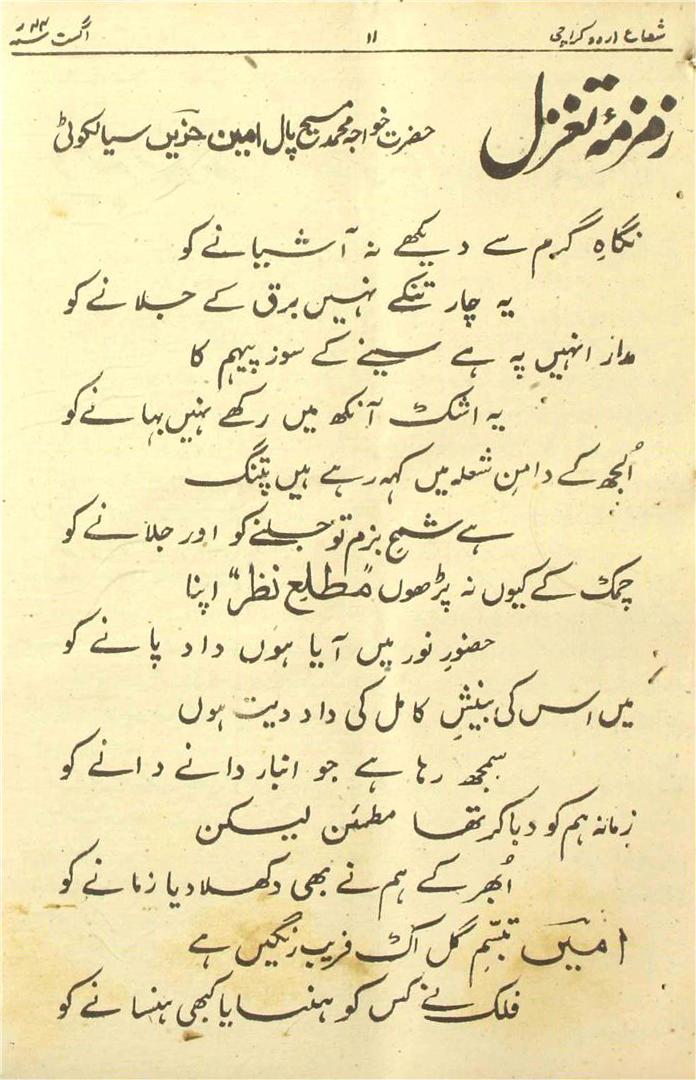 شعاع اردو کراچی
۱۱
اگست سنہ ۴۴ ء
زمزمۂ تغزل
حضرت خواجہ محمد مسیح پال امین حزیں سیالکوٹی
نگاہِ گرم سے دیکھے نہ آشیانے کو
یہ چار تنکے نہیں برق کے جلانے کو
مدار انہیں پہ ہے سینے کے سوز پیہم کا
یہ اشک آنکھ میں رکھے نہیں بہانے کو
اُلجھ کے دامنِ شعلہ میں کہہ رہے ہیں پتنگ
ہے شمعِ بزم تو جلنے کو اور جلانے کو
چمک کے کیوں نہ پڑھوں "مطلعِ نظر" اپنا
حضورِ نور میں آیا ہوں داد پانے کو
میں اس کی بینشِ کامل کی داد دیتا ہوں
سمجھ رہا ہے جو انبار دانے دانے کو
زمانہ ہم کو دبا کر تھا مطمئن لیکن
اُبھر کے ہم نے بھی دکھلا دیا زمانے کو
امیںؔ تبسّمِ گل اک فریب رنگیں ہے
فلک نے کس کو ہنسایا کبھی ہنسانے کو